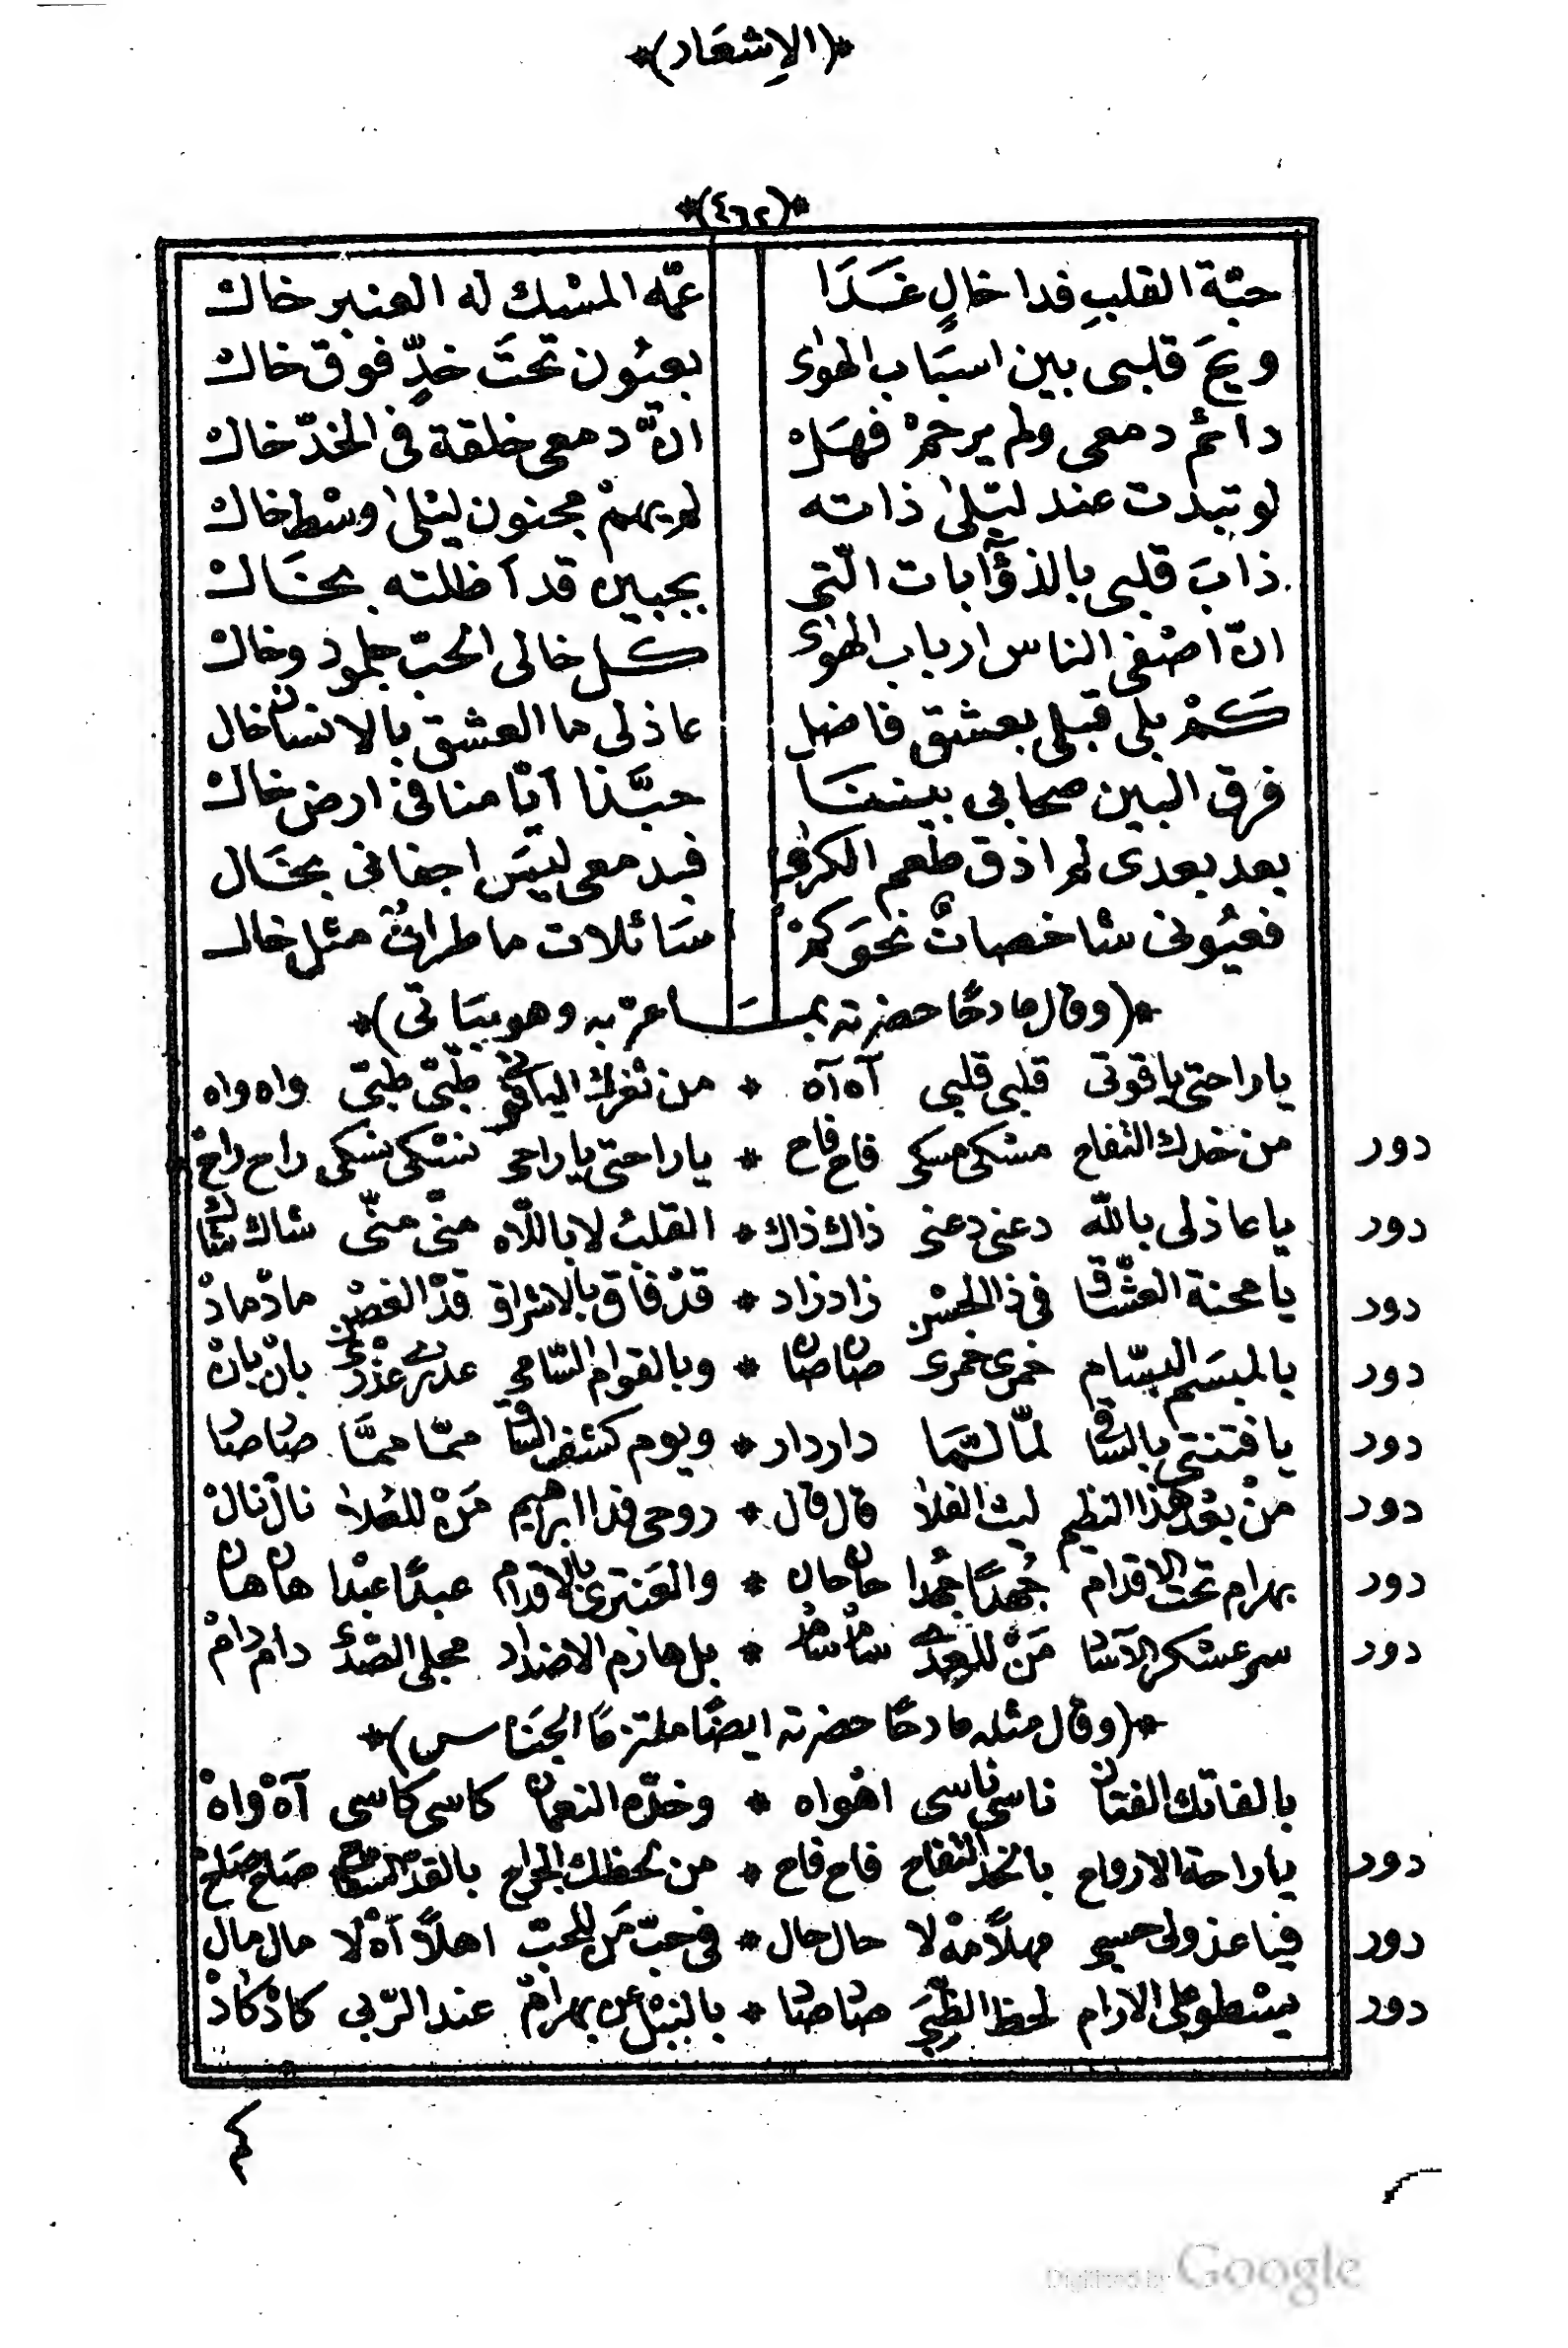 *(الإشعَار)*
*(٤٦٢)*
حبّة القلبِ فدا خالٍ غَدَا عمّه المسْك له العنبر خال
ويحَ قلبى بين اسبَاب الهوٰى بعيُون تحتَ خدٍّ فوق خال
دآئم دمعى ولم يرحمْ فهَلْ انّ دمعى خلقة فى الخدّ خال
لو تبدت عند ليْلىٰ ذاته لم يهمْ مجنون ليْلىٰ وسْط خال
ذابَ قلبى بالذؤآبات الّتى بجبين قد أظلته بخَال
انّ اصْفى الناس ارباب الهوٰى كل خالى الحبّ جلمود وخال
كَمْ بلى قبلى بعشق فاضل عاذلى ما العشق بالانسان خال
فرق البين صحابى بيننَا حبَّذا أيّامنا فى ارض خال
بعد بعدى لم اذق طعم الكرٰى فبدمعى ليسَ اجفانى بخَال
فعيُونى شاخصاتٌ نحوَكمْ سَائلات ماطراتٌ مثل خال
*(وقال مادحًا حضرته بمَا عرّبه وهو بيَاتى)*
ياراحتى ياقوتى قلبى قلبى آه آه * من ثغرك الياقوتى طبّى طبّى واه واه
دور من خدك التفاح مشكى مسكى فاح فاح * ياراحتى ياراحى نسْكى نسكى راح راحْ
دور ياعاذلى بالله دعنى دعنى ذاك ذاك * القلبُ لا باللاه منّى منّى شاك شاك
دور يامحنة العشّاق فى ذا الحسْن زاد زاد * قدْ فاق بالاشراق قدّ الغصْن مادْ مادْ
دور بالمبسَم البسّام خمرى خمرى صان صان * وبالقوام السّامى عذرى عذْرى بانْ بانْ
دور يافتنتى بالساقى لمّا لمَّا دار دار * ويوم كشف الساق ممّا ممَّا صار صار
دور منْ بعْد هذا النظيم ليث الفلا قال قال * روحى فدا ابراهيم مَنْ للعُلا نالْ نالْ
دور بهرام تحت الاقدام جُهدًا جُهدا حان حان * والعَنترى بالاقدام عبدًا عبْدا هان هان
دور سرعسْكر الآساد مَنْ للرعد سادْ سادْ * بل هازم الاضداد مجلى الصّدْى دام دامْ
*(وقال مثله مادحًا حضرته ايضًا ملتزمًا الجنَاس)*
بالفاتك الفتان ناسى ناسى اهْواه * وخدّه النعمان كاسى كاسى آهْ واهْ
دور ياراحة الارواح بالخد التفاح فاح فاح * من لحظك الجراح بالقدّ صَلح صَلحْ
دور فيا عذولى مهلاً مهْ لا حال حال * فى حبّ مَن للحبّ اهلاً آهْ لا مال مال
دور يسْطو على الارام لحظ الظبى صاد صاد * بالنبْل عن بهرامْ عند الرّبى كادْ كادْ
Digitized by Google